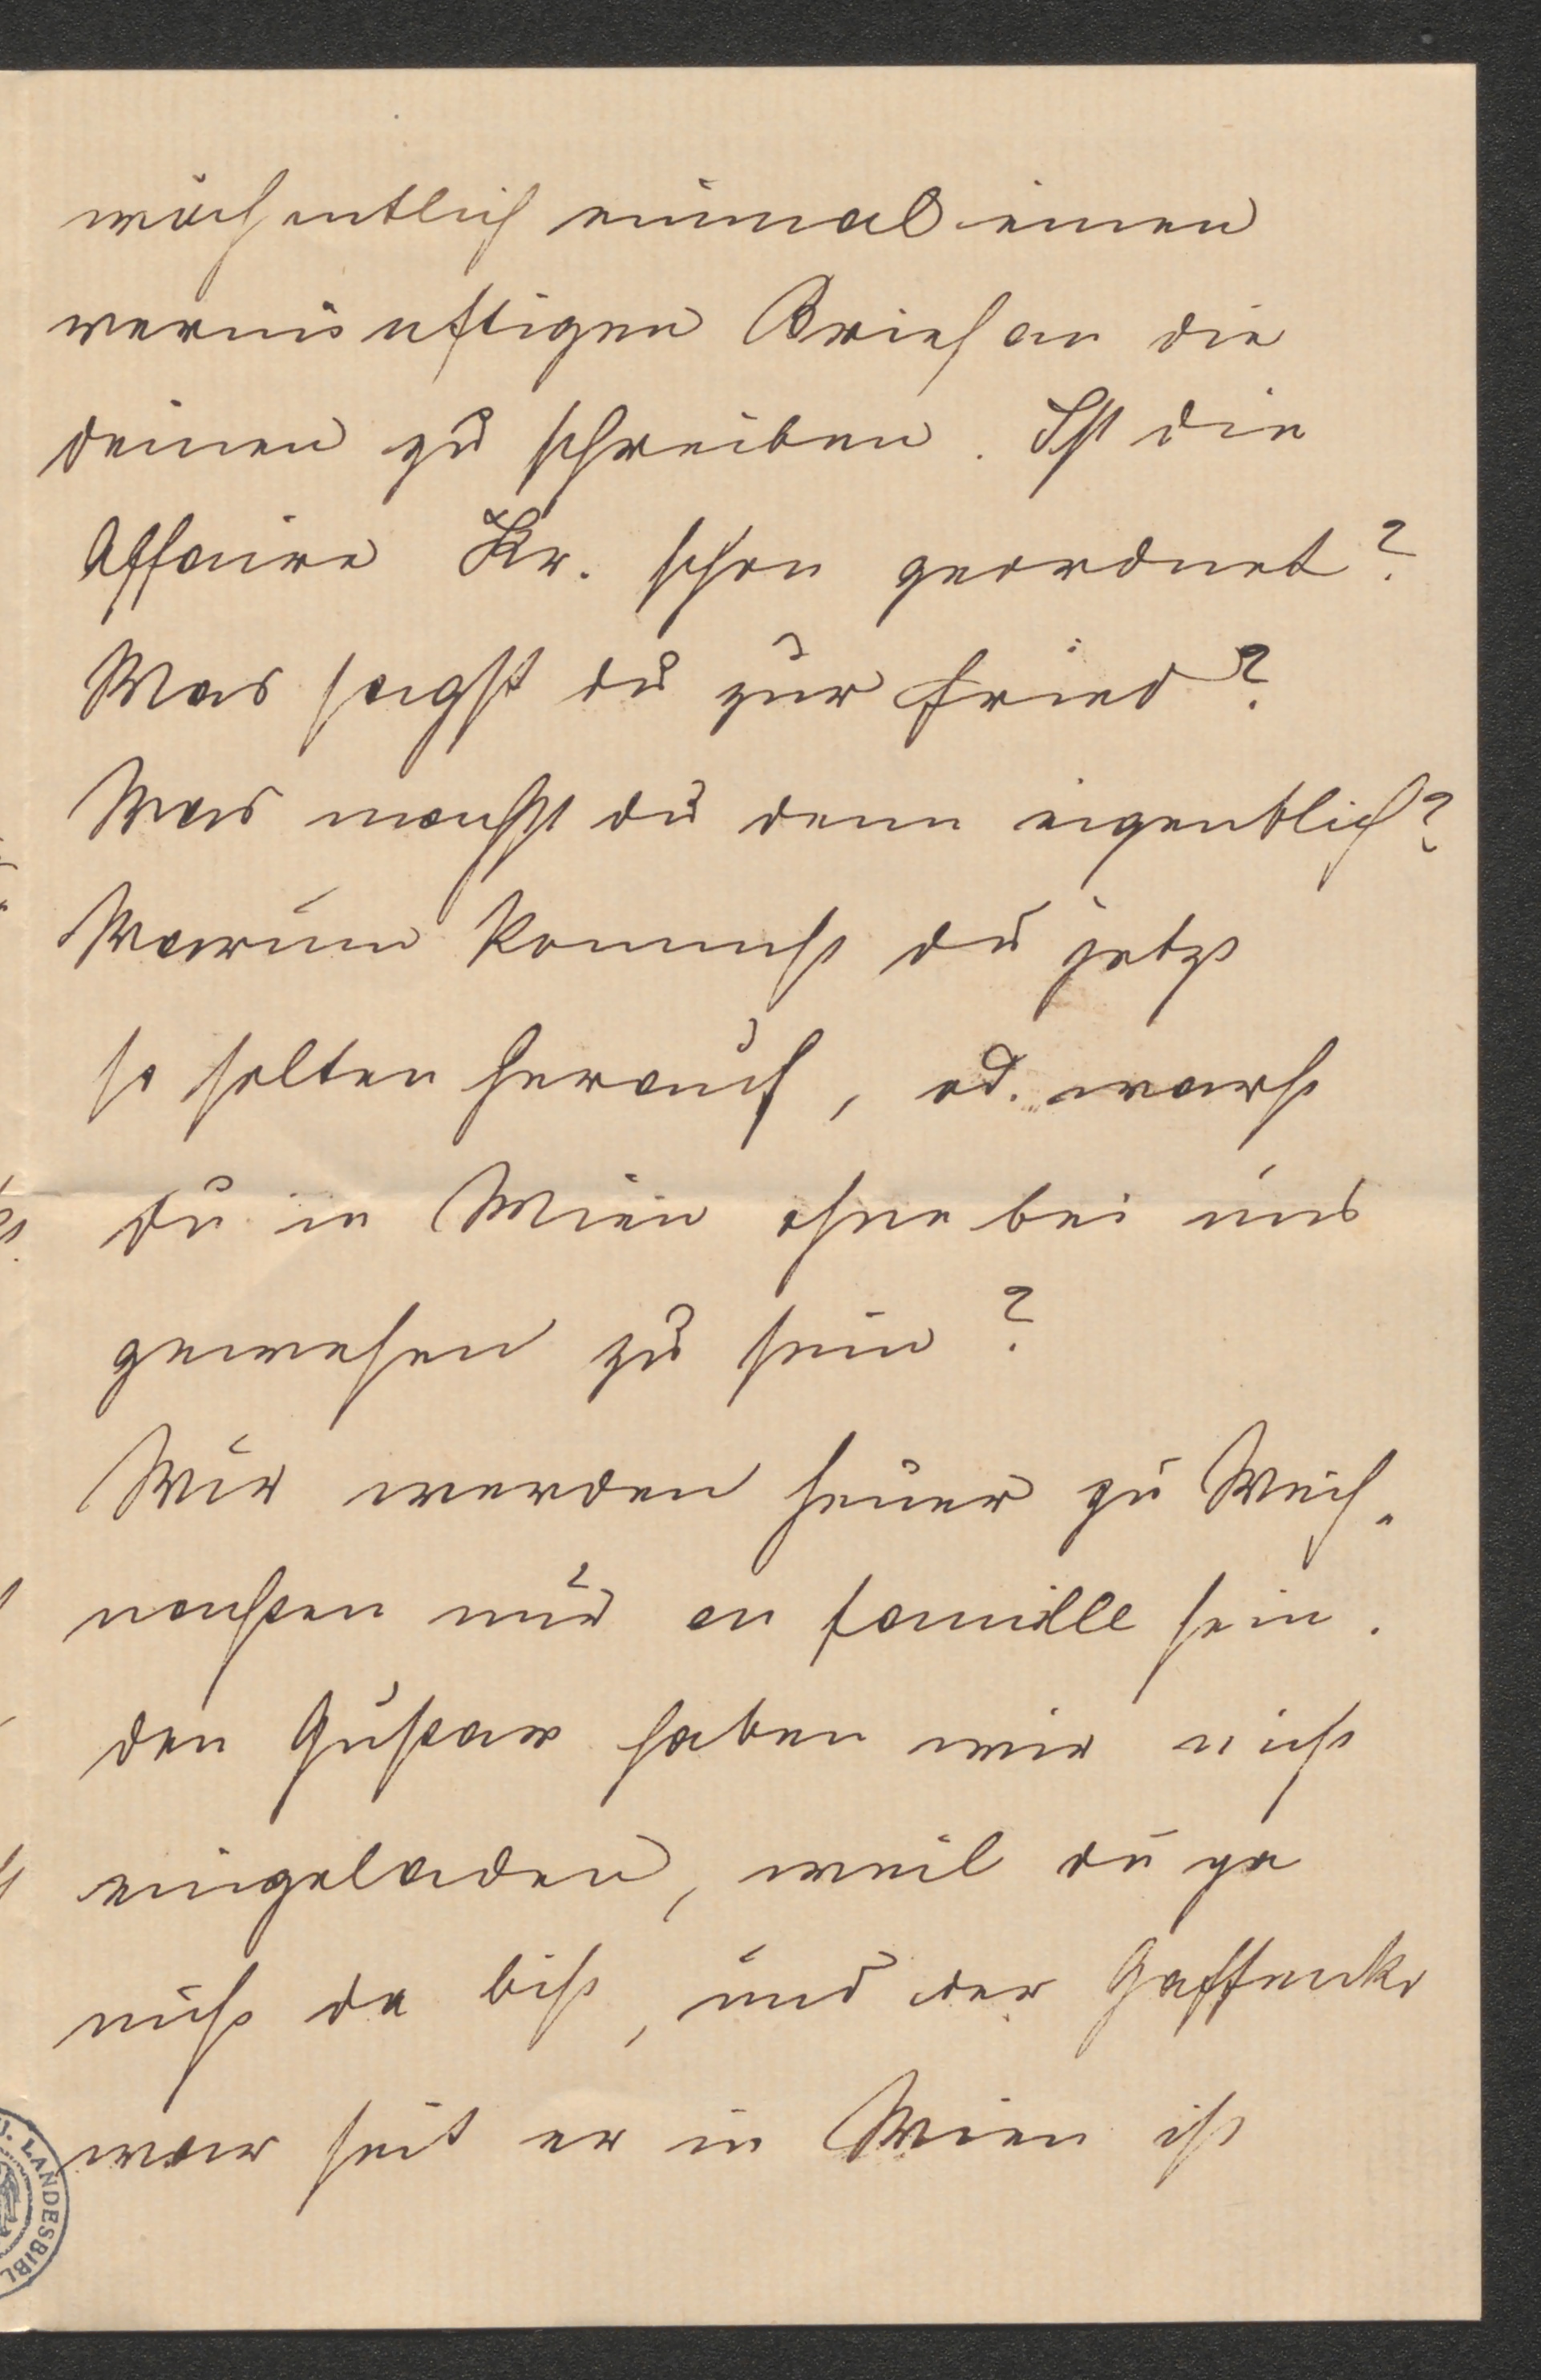 wöchentlich einmal einen
vernünftigen Brief an die
deinen zu schreiben. Ist die
Affaire Kr. schon geordnet?
Was sagst du zur Fried?
Was machst du denn eigentlich?
Warum kommst du jetzt
so selten herauf, od. warst
du in Wien ohne bei uns
gewesen zu sein?
Wir werden heuer zu Weih-
nachten nur en famille sein.
den Gustav haben wir nicht
eingeladen, weil du ja
nicht da bist, und der
war seit er in Wien ist
LANDESBIBL